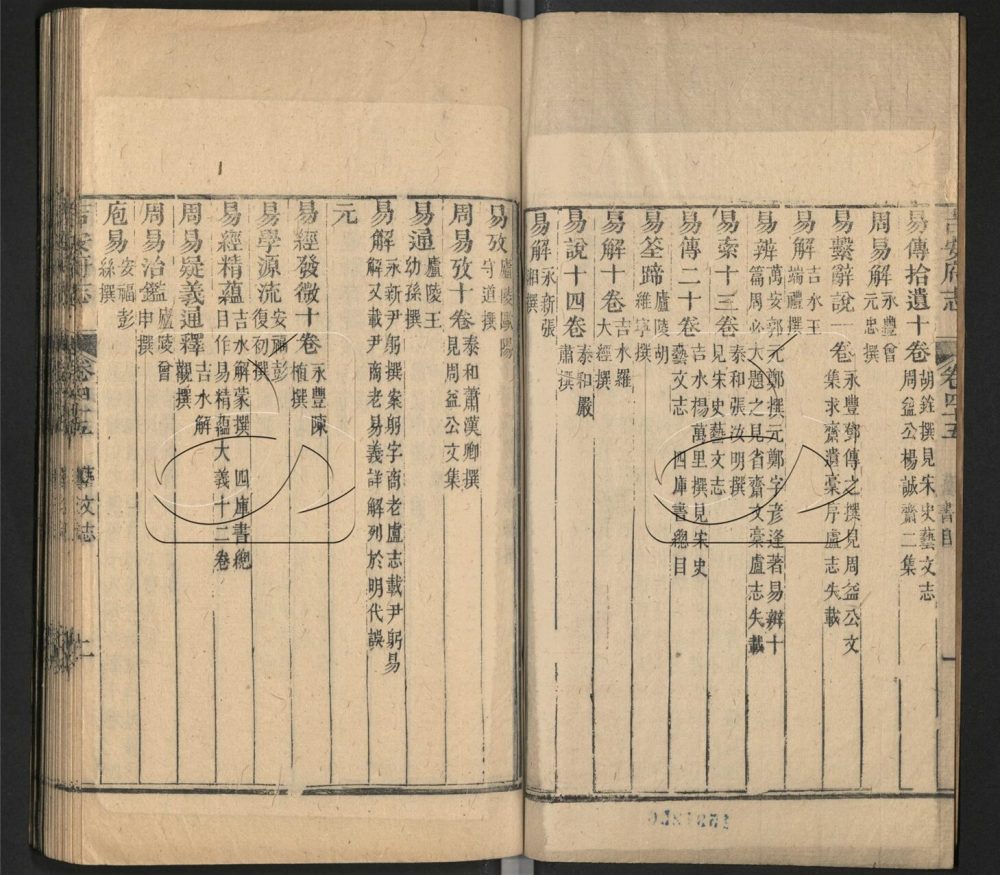 易傳拾遺十卷 胡銓撰見宋史藝文志周益公楊誠齋二集
周易解 永豐曾元忠撰
易繫辭說一卷 永豐鄧傳之撰見周益公文集求齋遺稾序盧志失載
易解 吉水王端禮撰
易辨 萬安郭元鄭撰元鄭字彥逢著易辨十篇周必大題之見省齋文稾盧志失載
易索十三卷 泰和張汝明撰見宋史藝文志
易傳二十卷 吉水楊萬里撰見宋史藝文志 四庫書總目
易筌蹄 廬陵胡維寧撰
易解十卷 吉水羅大經撰
易說十四卷 泰和嚴肅撰
易解 永新張撰
易攷 廬陵歐陽守道撰
周易攷十卷 泰和蕭漢卿撰見周益公文集
易通 廬陵王幼孫撰
易解 永新尹躬撰案躬字商老盧志載尹躬易解又載尹商老易義詳解列於明代誤
元
易經發微十卷 永豐陳植撰
易學源流 安福彭復初撰
易經精蘊 吉水解蒙撰 四庫書總目作易精蘊大義十二卷
周易疑義通釋 吉水解觀撰
周易治鑑 廬陵曾申撰
庖易 安福彭絲撰
吉安府志 卷四十五 藝文志